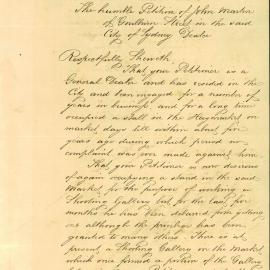 The humble Petition of John Martin
of Goulburn Street in the said
City of Sydney Dealer
Respectfully Sheweth
That your Petitioner is a
General Dealer and has resided in the
City and been engaged for a number of
years in business, and for a long time
occupied a Stall in the Haymarket on
market days till within about four
years ago during which period no
complaint was ever made against him.
That your Petitioner is now desirous
of again occupying a stand in the said
Market for the purpose of working a
Shooting Gallery but for the last few
months he has been debarred from getting
one although the privilege has been
granted to many others. There is at
present a Shooting Gallery on the Market
which once formed a portion of the Gallery